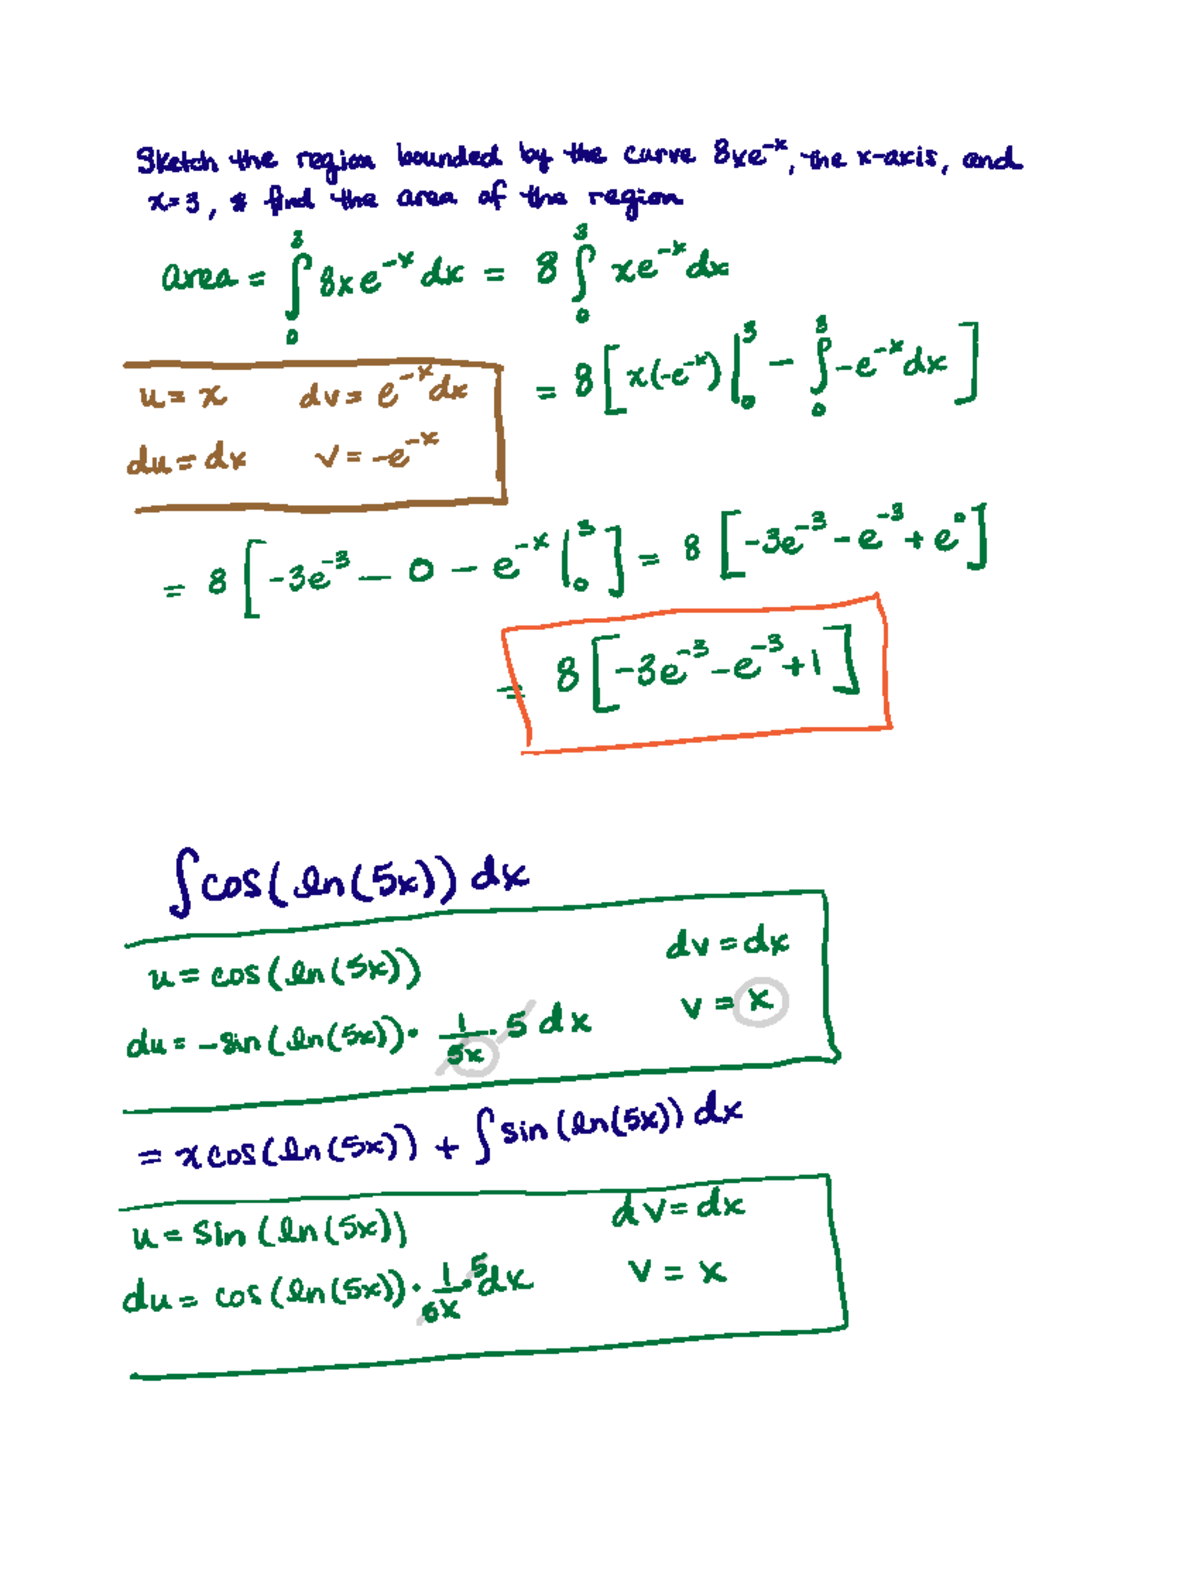 Sketch the region bounded by the curve 8xe^{-x}, the x-axis, and
x=3, & find the area of the region
area = ∫_0^3 8xe^{-x} dx = 8 ∫_0^3 xe^{-x} dx
= 8[x(-e^{-x})|_0^3 - ∫_0^3 -e^{-x} dx]
u = x dv = e^{-x} dx
du = dx v = -e^{-x}
= 8[-3e^{-3} - 0 - e^{-x}|_0^3] = 8[-3e^{-3} - e^{-3} + e^0]
= 8[-3e^{-3} - e^{-3} + 1]
∫ cos(ln(5x)) dx
u = cos(ln(5x)) dv = dx
du = -sin(ln(5x)) · 1/5x · 5 dx v = x
= x cos(ln(5x)) + ∫ sin(ln(5x)) dx
u = sin(ln(5x)) dv = dx
du = cos(ln(5x)) · 1/5x · 5 dx v = x